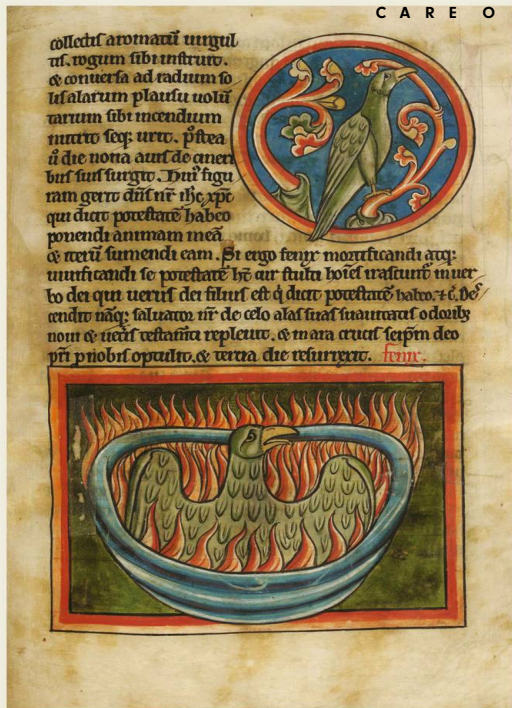 CARE O
collectis aromatū uirgul
tis. rogum sibi instruit.
& conuersa ad radium so
lis alarum plausu uolū
tarium sibi incendium
nutrit seq; urit. p̄stea
ū die nona auis de cineri
bus suis surgit. Huiꝰ figu
ram gerit dn̄s nr̄ ihc̄ xpc̄
qui dicit potestatē habeo
ponendi animam meā
& iterū sumendi eam. Si ergo fenix mortificandi atq;
uiuificandi se potestatē ht̄ cur stulti hoīes irascunt᷑ in uer
bo dei qui uerus dei filius est q̇ dicit potestatē habeo. ⁊ c̄. Des
cendit nāq; saluator nr̄ de celo alas suas suauitatis odorib;
noui & uet̄is testam̄ti repleuit. & in ara crucis seip̄m deo
pr̄i p nobis optulit. & tercia die resurrexit. fenix.